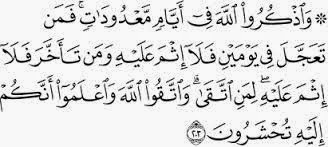 ۞ وَاذْكُرُوا اللَّهَ فِي أَيَّامٍ مَّعْدُودَاتٍ ۚ فَمَن
تَعَجَّلَ فِي يَوْمَيْنِ فَلَا إِثْمَ عَلَيْهِ وَمَن تَأَخَّرَ فَلَا
إِثْمَ عَلَيْهِ ۖ لِمَنِ اتَّقَىٰ ۗ وَاتَّقُوا اللَّهَ وَاعْلَمُوا أَنَّكُمْ
إِلَيْهِ تُحْشَرُونَ ﴿٢٠٣﴾